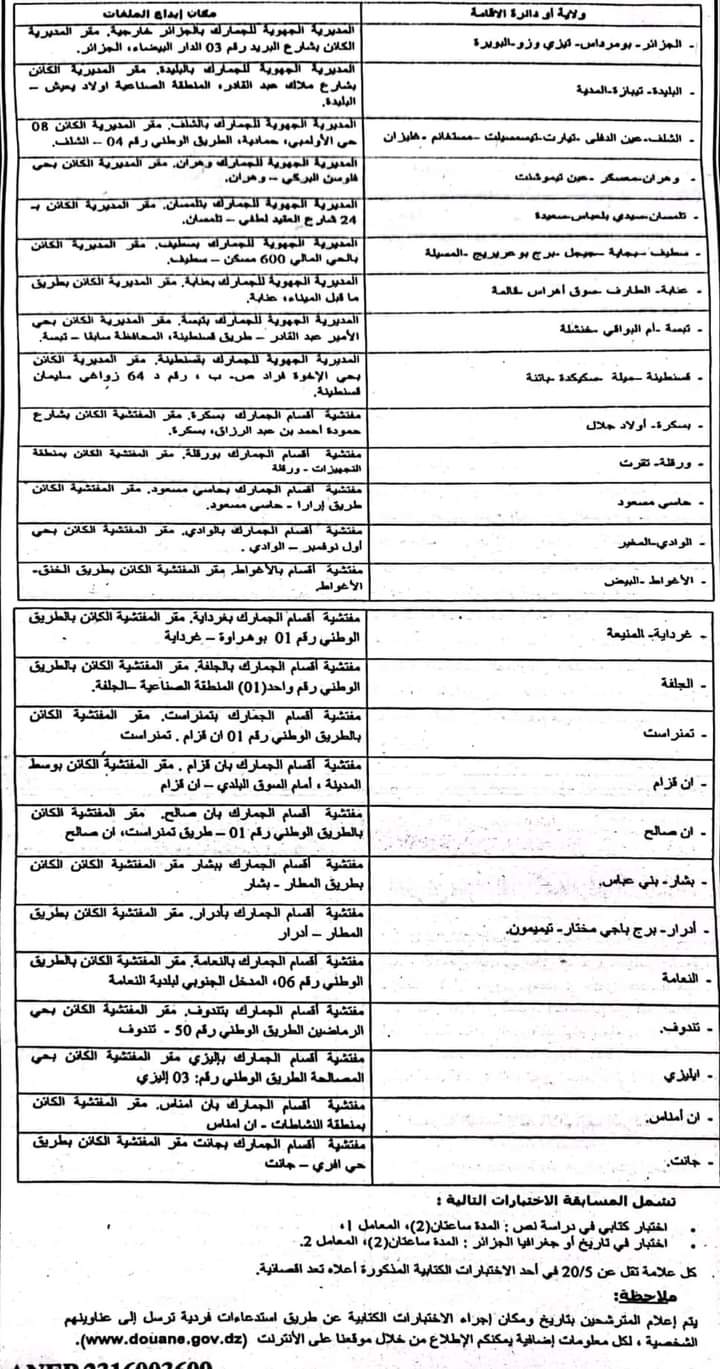 ولاية أو دائرة الاقامة
مكان إيداع الملفات
- الجزائر- بومرداس- تيزي وزو-البويرة
المديرية الجهوية للجمارك بالجزائر خارجية. مقر المديرية
الكائن بشارع البريد رقم 03 الدار البيضاء، الجزائر.
- البليدة- تيبازة-المدية
المديرية الجهوية للجمارك بالبليدة. مقر المديرية الكائن
بشارع ملاك عبد القادر، المنطقة الصناعية اولاد يعيش –
البليدة.
- الشلف-عين الدفلى -تيارت-تيسمسيلت –مستغانم -غليزان
المديرية الجهوية للجمارك بالشلف. مقر المديرية الكائن 08
حي الأولمبي، حمادية، الطريق الوطني رقم 04 – الشلف.
- وهران-معسكر -عين تيموشنت
المديرية الجهوية للجمارك وهران. مقر المديرية الكائن بحي
البركي – وهران.
- تلمسان-سيدي بلعباس-سعيدة
المديرية الجهوية للجمارك بتلمسان. مقر المديرية الكائن بـ
24 شارع العقيد لطفي – تلمسان.
- سطيف-بجاية -جيجل -برج بوعريريج- المسيلة
المديرية الجهوية للجمارك بسطيف. مقر المديرية الكائن
بالحي المالي 600 مسكن – سطيف.
- عنابة- الطارف -سوق أهراس -قالمة
المديرية الجهوية للجمارك بعنابة. مقر المديرية الكائن بطريق
ما قبل الميناء، عنابة.
- تبسة -أم البواقي -خنشلة
المديرية الجهوية للجمارك بتبسة. مقر المديرية الكائن بحي
الأمير عبد القادر – طريق قسنطينة، المحافظة سابقا – تبسة.
- قسنطينة –ميلة -سكيكدة –باتنة
المديرية الجهوية للجمارك بقسنطينة. مقر المديرية الكائن
بحي الإخوة فراد ص- ب ، رقم د 64 زواغي سليمان
قسنطينة.
- بسكرة- أولاد جلال
مفتشية أقسام الجمارك بسكرة. مقر المفتشية الكائن بشارع
حمودة أحمد بن عبد الرزاق، بسكرة.
- ورقلة- تقرت
مفتشية أقسام الجمارك بورقلة. مقر المفتشية الكائن بمنطقة
التجهيزات - ورقلة
- حاسي مسعود
مفتشية أقسام الجمارك بحاسي مسعود. مقر المفتشية الكائن
طريق إرارا - حاسي مسعود.
- الوادي-المغير
مفتشية أقسام الجمارك بالوادي. مقر المفتشية الكائن بحي
أول نوفمبر – الوادي .
- الأغواط -البيض
مفتشية أقسام بالأغواط. مقر المفتشية الكائن بطريق الخنق-
الأغواط.
- غرداية- المنيعة
مفتشية أقسام الجمارك بغرداية. مقر المفتشية الكائن بالطريق
الوطني رقم 01 بوهراوة – غرداية
- الجلفة
مفتشية أقسام الجمارك بالجلفة. مقر المفتشية الكائن بالطريق
الوطني رقم واحد(01) المنطقة الصناعية –الجلفة.
- تمنراست
مفتشية أقسام الجمارك بتمنراست. مقر المفتشية الكائن
بالطريق الوطني رقم 01 ان قزام . تمنراست
- ان قزام
مفتشية أقسام الجمارك بان قزام . مقر المفتشية الكائن بوسط
المدينة ، أمام السوق البلدي – ان قزام
- ان صالح
مفتشية أقسام الجمارك بان صالح. مقر المفتشية الكائن
بالطريق الوطني رقم 01 – طريق تمنراست، ان صالح
- بشار- بني عباس
مفتشية أقسام الجمارك ببشار مقر المفتشية الكائن الكائن
بطريق المطار - بشار
- أدرار- برج باجي مختار- تيميمون.
مفتشية أقسام الجمارك بأدرار. مقر المفتشية الكائن بطريق
المطار – أدرار
- النعامة
مفتشية أقسام الجمارك بالنعامة. مقر المفتشية الكائن بالطريق
الوطني رقم 06، المدخل الجنوبي لبلدية النعامة
- تندوف.
مفتشية أقسام الجمارك بتندوف. مقر المفتشية الكائن بحي
الرماضين الطريق الوطني رقم 50 - تندوف
- ايليزي
مفتشية أقسام الجمارك بإليزي مقر المفتشية الكائن بحي
المصالحة الطريق الوطني رقم: 03 إليزي
- ان أمناس.
مفتشية أقسام الجمارك بان امناس. مقر المفتشية الكائن
بمنطقة النشاطات - ان امناس
- جانت.
مفتشية أقسام الجمارك بجانت مقر المفتشية الكائن بطريق
حي افري – جانت
تشمل المسابقة الاختبارات التالية :
• اختبار كتابي في دراسة نص : المدة ساعتان(2)، المعامل 1،
• اختبار في تاريخ أو جغرافيا الجزائر : المدة ساعتان(2)، المعامل 2.
كل علامة تقل عن 20/5 في أحد الاختبارات الكتابية المذكورة أعلاه تعد اقصائية.
ملاحظة:
يتم إعلام المترشحين بتاريخ ومكان إجراء الاختبارات الكتابية عن طريق استدعاءات فردية ترسل إلى عناوينهم
الشخصية ، لكل معلومات إضافية يمكنكم الإطلاع من خلال موقعنا على الأنترنت (www.douane.gov.dz).